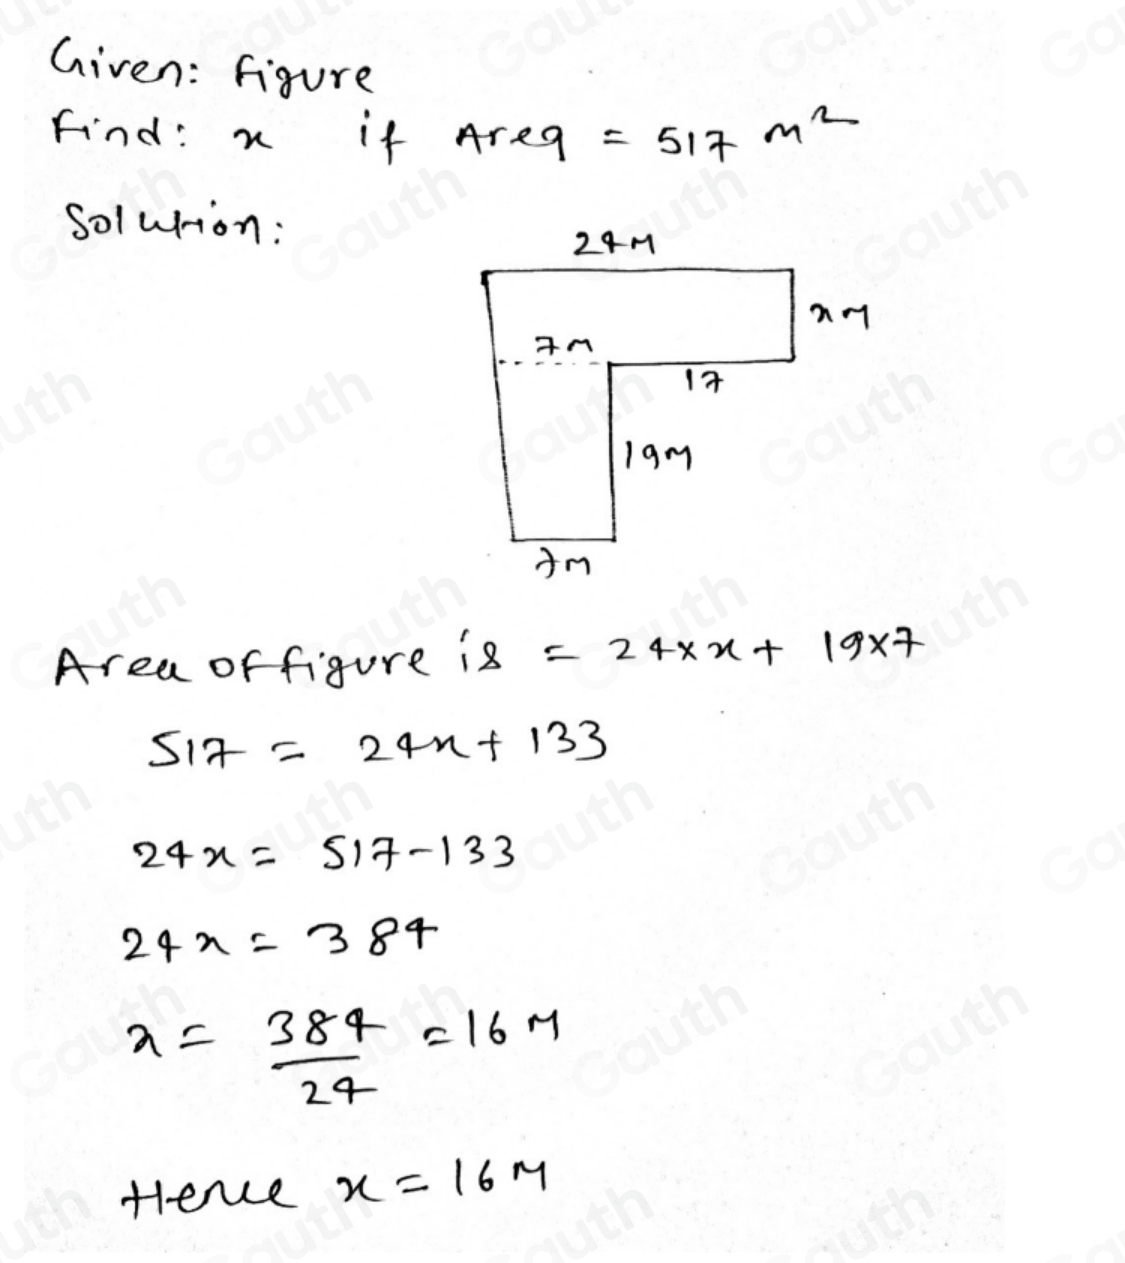 Given: figure
Find: x if Area = 517 m²
Solution:
24M
xM
7M
17
19M
7M
Area of figure is = 24×x + 19×7
517 = 24x + 133
24x = 517-133
24x = 384
x = 384/24 = 16 M
Hence x = 16 M